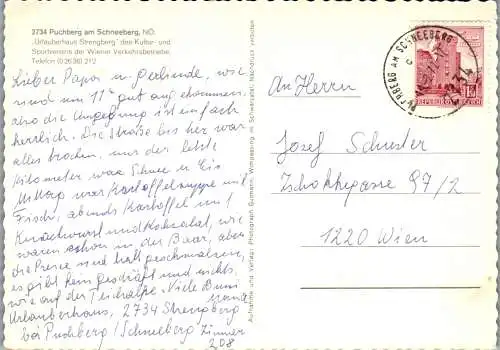 2734 Puchberg am Schneeberg, NÖ:
„Urlauberhaus Strengberg" des Kultur- und
Sportvereins der Wiener Verkehrsbetriebe,
Telefon (0 26 36) 212
Lieber Papa u Gerlinde, wir
sind um 11h gut angekommen.
also die Umgebung ist einfach
herrlich. Die Straße bis her war
alles trocken, nur der letzte
Kilometer war Schnee u Eis
Mittag war Kartoffelsuppe mit
Fisch, abends Kartoffel mit
Knackwurst und Kohlsalat, wir
waren schon in der Baar, aber
die Preise sind halt geschmalzen,
es gibt kein Geschäft und nichts
wie auf der Teichalpe. Viele Bussi
Urlauberhaus, 2734 Strengberg
bei Puchberg / Schneeberg Zimmer
208
Aufnahme und Verlag: Photograph Gutmann, Wimpassing im Schwarzatal. Nachdruck verboten
PUCHBERG AM SCHNEEBERG
2734
REPUBLIK ÖSTERREICH
An Herrn
Josef Schuster
Zschokkegasse 97/2
1220 Wien